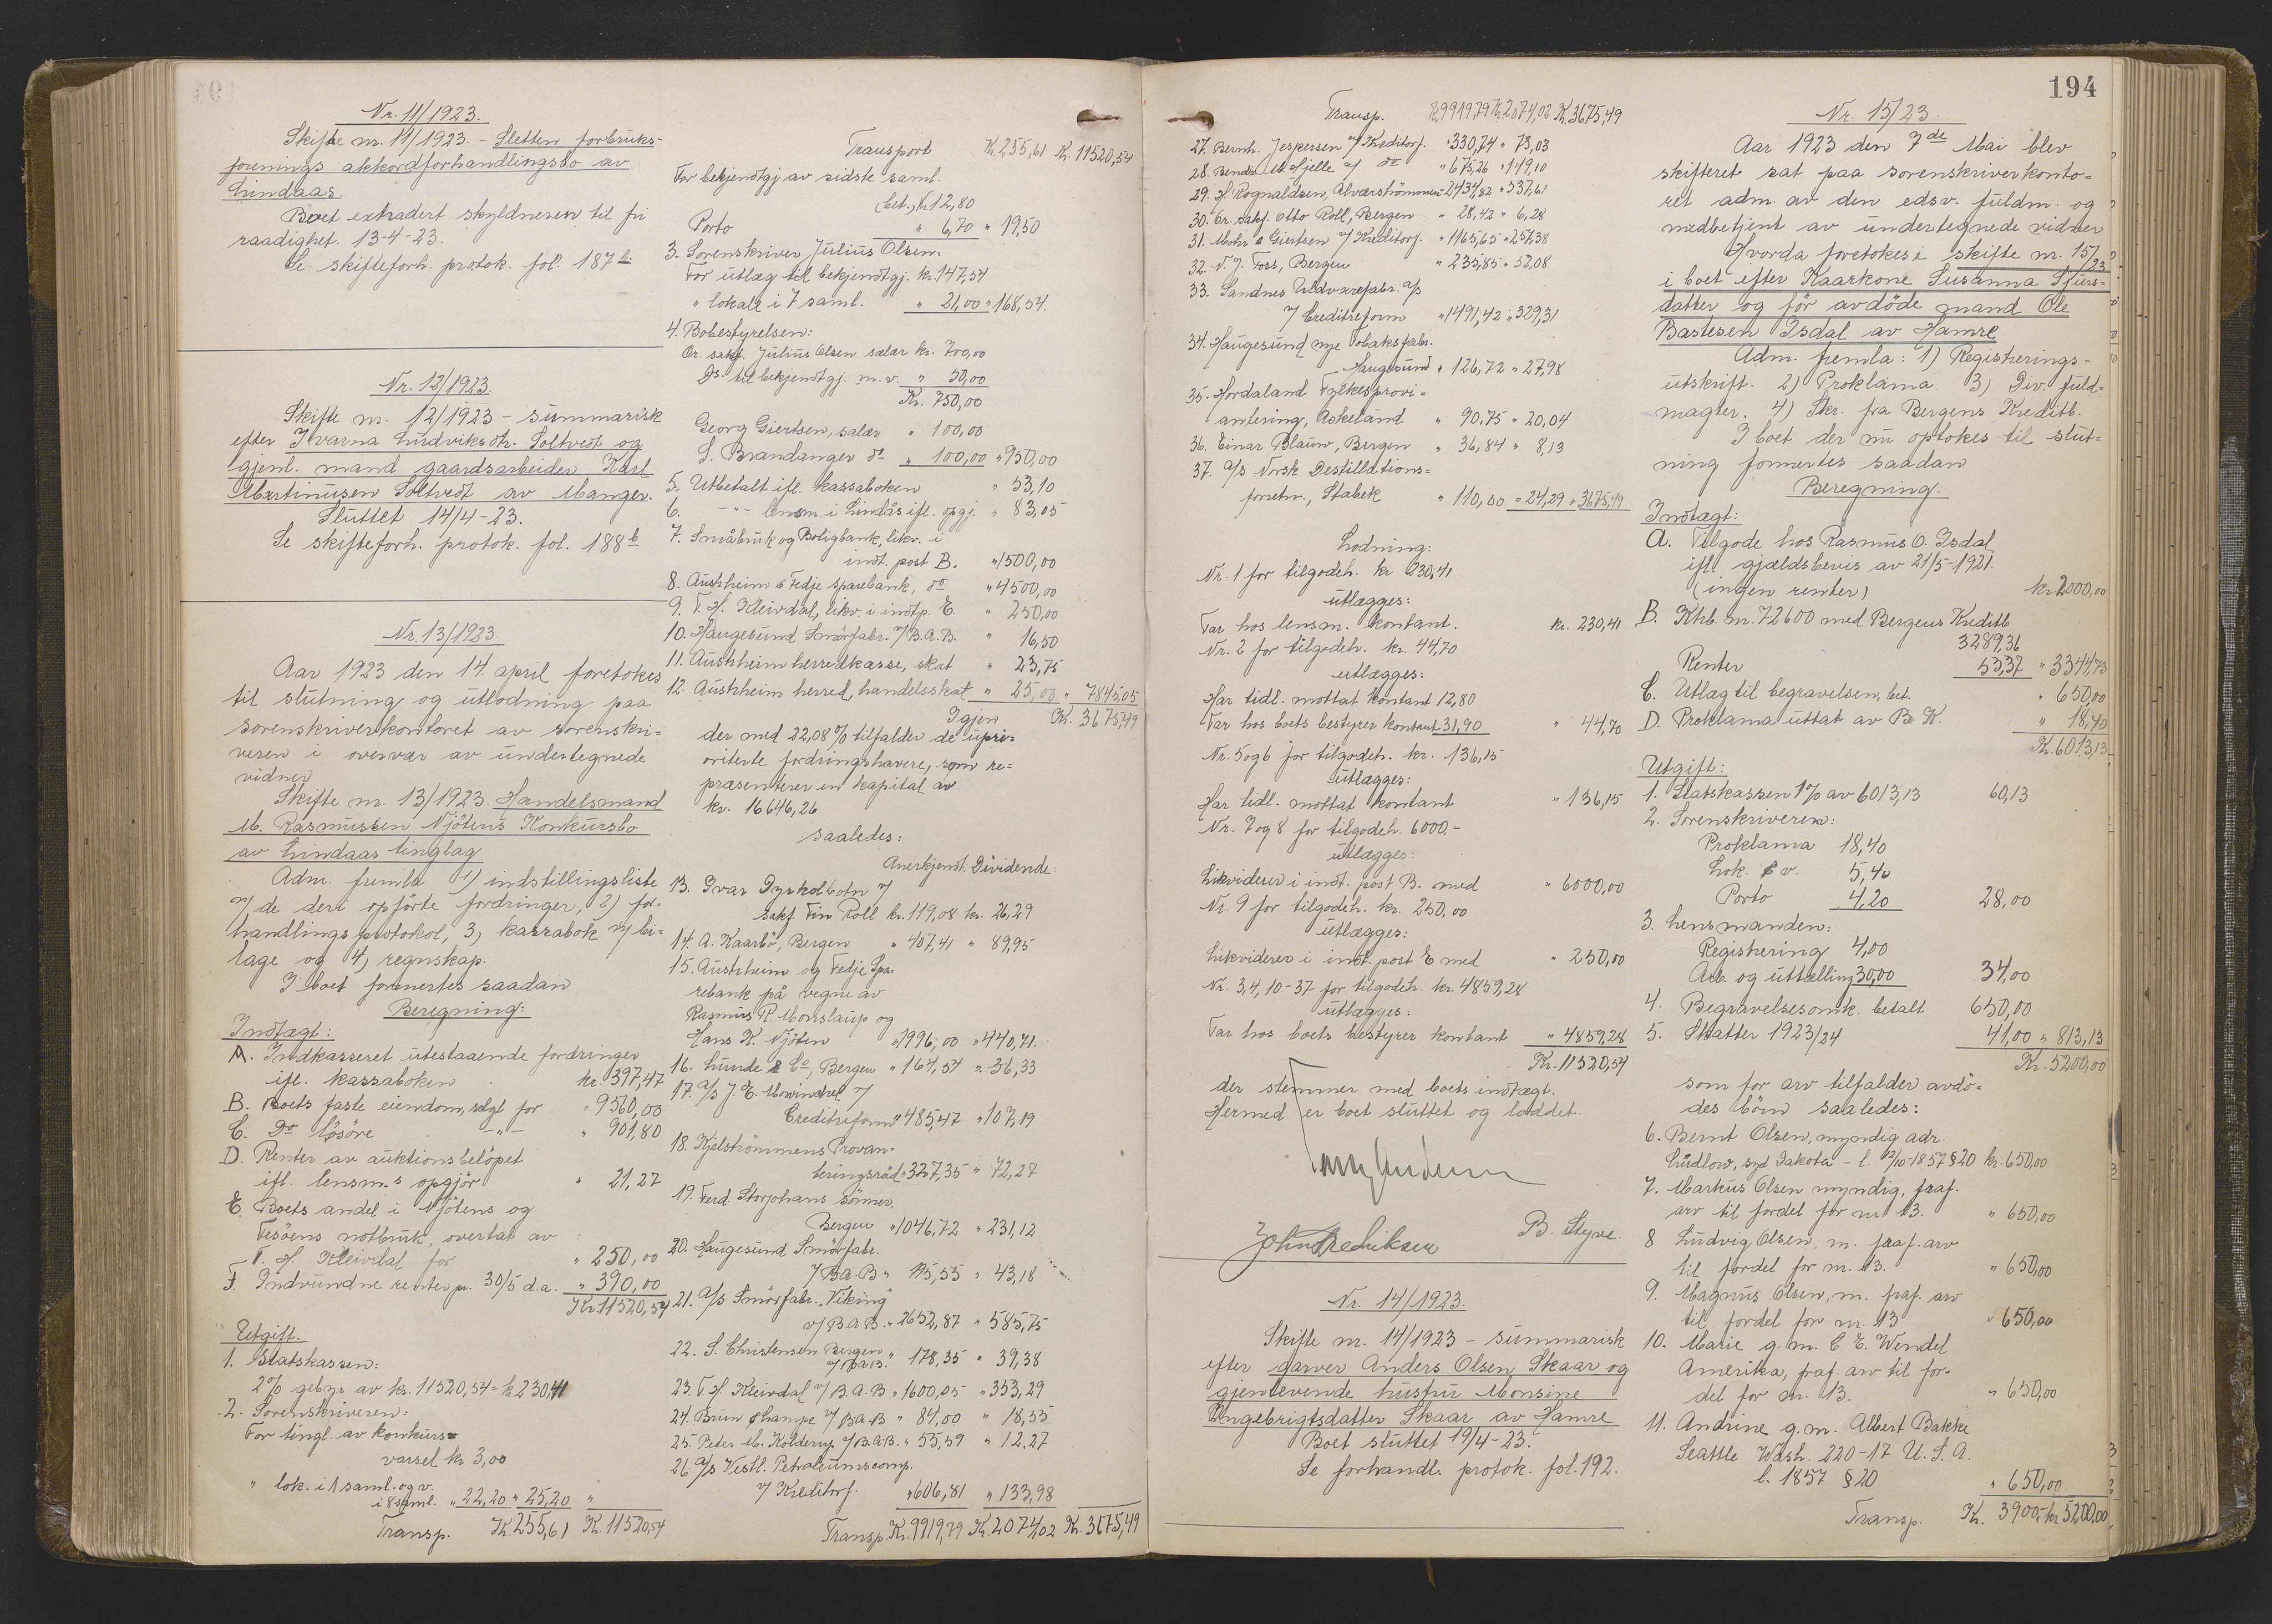 Nr. 11/1923.
Skifte nr. 11/1923. - Sletten forbruks-
forenings akkordforhandlingsbo av
Lindaas
Boet extradert skyldneren til fri
raadighet. 13-4-23.
Se skifteforh. protok. fol. 187 b.
Nr. 12/1923.
Skifte nr. 12/1923 - summarisk
efter Ivarna Ludviksdtr. Soltvedt og
gjenl. mand gaardsarbeider Karl
Martinusen Soltvedt av Manger.
Sluttet 14/4-23.
Se skifteforh. protok. fol. 188 b
Nr. 13/1923
Aar 1923 den 14. april foretokes
til slutning og utlodning paa
sorenskriverkontoret av sorenskri-
veren i overvær av undertegnede
vidner
Skifte nr. 13/1923. Handelsmand
M. Rasmussen Njötens Konkursbo
av Lindaas tinglag
Adm. fremla 1) indstillingsliste
m/ de deri opförte fordringer, 2) for-
handlingsprotokol, 3) kassabok m/ bi-
lage og 4) regnskap.
I boet formertes saadan
Beregning:
Indtægt:
A. Indkasseret utestaaende fordringer
ifl. kassaboken kr. 397,47
B. Boets faste eiendom, solgt for " 9560,00
C. Do lösöre -"- " 901,80
D. Renter av auktionsbelöpet
ifl. lensm.s opgjör " 21,27
E. Boets andel i Njötens og
Fesöens notbruk, overtat av
T. H. Kleivdal for " 250,00
F. Indvundne renter pr. 30/5 d.a. " 390,00
Kr 11520,54
Utgift.
1. Statskassen:
2% gebyr av kr. 11520,54 = kr 230,41
2. Sorenskriveren:
For tingl. av konkurs-
varsel kr 3,00
" lok. i 1 saml. og v.
i 8 saml. " 22,20 " 25,20 "
Transp. Kr. 255,61 Kr. 11520,54
Transport Kr. 255,61 Kr. 11520,54
For bekjendtgj av sidste saml.
(bet.) kr 12,80
Porto " 6,70 " 19,50
3. Sorenskriver Julius Olsen:
For utlæg til bekjendtgj. kr. 147,54
" lokale i 7 saml. " 21,00 " 168,54.
4. Bobestyrelsen:
Or. sakf. Julius Olsen salær kr. 700,00
Ds. til bekjendtgj. m.v. " 50,00
Kr. 750,00
Georg Giertsen, salær " 100,00
S. Brandanger do " 100,00 " 950,00
5. Utbetalt ifl. kassaboken " 53,10
6. -"- lensm. i Lindås ifl. opgj. " 83,05
7. Småbruk og Boligbank, likv. i
indt. post B. " 1500,00
8. Austrheim & Fedje sparebank, do " 4500,00
9. T. H. Kleivdal, likv. i indtp. E. " 250,00
10. Haugesund Smörfabr. v/ B.A.B. " 16,50
11. Austrheim herredkasse, skat " 23,75
12. Austrheim herred, handelsskat " 25,00 " 7845,05
Igjen Kr. 3675,49
der med 22,08% tilfalder de upri-
oriterte fordringshavere, som re-
præsenterer en kapital av
kr. 16646,26
saaledes:
Anerkjendt: Dividende:
13. Ivar Dyrkolbotn v/
sakf Fin Roll kr. 119,08 kr. 26,29
14. A. Kaarbö, Bergen " 407,41 " 89,95
15. Austrheim og Fedje Spa-
rebank på vegne av
Rasmus R. Monslaup og
Hans K. Njöten " 1996,00 " 440,71.
16. Lunde & Co, Bergen " 164,54 " 36,33
17. A/s J. E. Mowinckel v/
Creditreform " 485,47 " 107,19
18. Kjelströmmens Provian-
teringsråd " 327,35 " 72,27
19. Ferd. Storjohans sönner,
Bergen " 1046,72 " 231,12
20. Haugesund Smörfabr.
v/ B.A.B " 195,55 " 43,18
21. A/s Smörfabr. „Viking"
v/ B.A.B. " 2652,87 " 585,75
22. S. Christensen Bergen
v/ B.A.B. " 178,35 " 39,38
23. T. H. Kleivdal v/ B.A.B " 1600,05 " 353,29
24. Brun & Lampe v/ B.A.B " 84,00 " 18,55
25. Peter M. Kolderup v/ B.A.B. " 55,59 " 12,27
26 A/s Vestl. Petroleumscomp.
v/ Kreditorf. " 606,81 " 133,98
Transp. Kr. 9919,79 Kr. 2074,02 Kr. 3675,49
194
Transp. Kr. 9919,79 Kr. 2074,02 Kr. 3675,49
27. Bernh. Jespersen v/ Kreditorf. " 330,74 " 73,03
28. M. Hjelle v/ do " 675,26 " 149,10
29. H. Rognaldsen, Alverströmmen " 2434,82 " 537,61
30. Or. sakf. Otto Roll, Bergen " 28,42 " 6,28
31. Mohr & Giertsen v/ Kreditorf. " 1165,65 " 257,38
32. N. J. Foss, Bergen " 235,85 " 52,08
33. Sandnes Uldvarefabr. A/s
v/ Creditreform " 1491,42 " 329,31
34. Haugesund nye Tobaksfabr.
Haugesund " 126,72 " 27,98
35. Hordaland Fylkesprovi-
antering, Askeland " 90,75 " 20,04
36. Einar Blauw, Bergen " 36,84 " 8,13
37. A/s Norsk Destillations-
forretn., Stabek " 110,00 " 24,29 " 3675,49
Lodning:
Nr. 1 for tilgodeh. kr 230,41
utlægges:
Tar hos lensm. kontant. kr. 230,41
Nr. 2 for tilgodeh. kr. 44,70
utlægges:
Har tidl. mottat kontant 12,80
Tar hos boets bestyrer kontant 31,90 " 44,70
Nr. 5 og 6 for tilgodeh. kr. 136,15
utlægges:
Har tidl. mottat kontant " 136,15
Nr. 7 og 8 for tilgodeh. 6000.-
utlægges:
Likviderer i indt. post B. med " 6000,00
Nr. 9 for tilgodeh. kr. 250,00
utlægges:
Likviderer i indt. post E med " 250,00
Nr. 3,4, 10-37 for tilgodeh. kr. 4859,28
utlægges:
Tar hos boets bestyrer kontant " 4859,28
Kr. 11520,54
der stemmer med boets indtægt.
Hermed er boet sluttet og loddet.
B. Styve.
John Fredriksen
Nr. 14/1923.
Skifte nr. 14/1923 - summarisk
efter garver Anders Olsen Skaar og
gjenlevende hustru Monsine
Engebrigtsdatter Skaar av Hamre
Boet sluttet 19/4-23.
Se forhandl. protok. fol. 192.
Nr. 15/23.
Aar 1923 den 7de Mai blev
skifteret sat paa sorenskriverkonto-
ret adm. av den edsv. fuldm. og
medbetjent av undertegnede vidner
Hvorda foretokes i skifte nr. 15/23
i boet efter Kaarkone Susanna Sjurs-
datter og för avdöde mand Ole
Bastesen Isdal av Hamre
Adm. fremla: 1) Registrerings-
utskrift. 2) Proklama. 3) Div. fuld-
magter. 4) Skr. fra Bergens Kreditb.
I boet der nu optokes til slut-
ning formertes saadan
Beregning.
Indtægt:
A. Tilgode hos Rasmus O. Isdal
ifl. gjældsbevis av 21/5-1921.
(ingen renter) kr 2000,00
B. Ktrb. nr. 72600 med Bergens Kreditb
3289,36
Renter 53,37 " 3344,73
C. Utlæg til begravelsen, bet. " 650,00
D. Proklama uttat av B. K. " 18,40
Kr. 6013,13
Utgift:
1. Statskassen 1% av 6013,13 60,13
2. Sorenskriveren:
Proklama 18,40
Lok. & v. 5,40
Porto 4,20 28,00
3. Lensmanden:
Registrering 4,00
Arb. og uttælling 30,00 34,00
4. Begravelsesomk. betalt 650,00
5. Skatter 1923/24 41,00 " 813,13
Kr. 5200,00
som for arv tilfalder avdö-
des börn saaledes:
6. Bernt Olsen, myndig adr.
Ludlow, syd Dakota - l. 12/10-1857 § 20 kr. 650,00
7. Markus Olsen myndig, fraf.
arv til fordel for nr. 13. " 650,00
8 Ludvig Olsen, m. fraf. arv
til fordel for nr. 13. " 650,00
9. Magnus Olsen, m. fraf. arv
til fordel for nr. 13 " 650,00
10. Marie g. m. C. E. Wendel
Amerika, fraf. arv til for-
del for nr. 13. " 650,00
11. Andrine g. m. Albert Bakke
Seattle Wash. 220-17 U.S.A.
l. 1857 § 20 " 650,00
Transp. Kr. 3900,- kr 5200,00